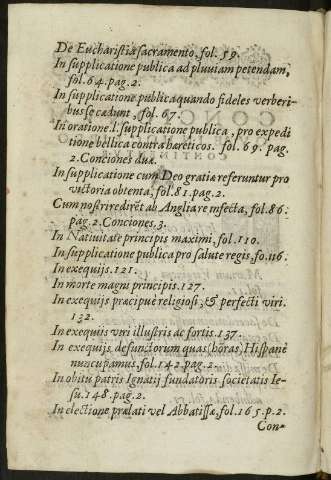 De Eucharistiæ sacramento, fol. 59.
In supplicatione publica ad pluviam petendam,
fol. 64. pag. 2.
In supplicatione publica quando fideles verberi-
bus se cædunt, fol. 67.
In oratione. l. supplicatione publica, pro expedi
tione bellica contra hæreticos. fol. 69. pag.
2. Conciones duæ.
In supplicatione cum Deo gratiæ referuntur pro
victoria obtenta, fol. 81. pag. 2.
Cum nostri redirẽt ab Anglia re infecta, fol. 86.
pag. 2. Conciones, 3.
In Nativitate principis maximi, fol. 110.
In supplicatione publica pro salute regis, fo. 116.
In exequijs. 121.
In morte magni principis. 127.
In exequijs præcipuè religiosi, & perfecti viri.
132.
In exequiis viri illustris ac fortis. 137.
In exequijs defunctorum quas, horas, Hispanè
nuncupamus, fol. 142. pag. 2.
In obitu patris Ignatij fundatoris societatis Ie-
su. 148. pag. 2.
In electione prælati vel Abbatissæ, fol. 165. p. 2.
Con-